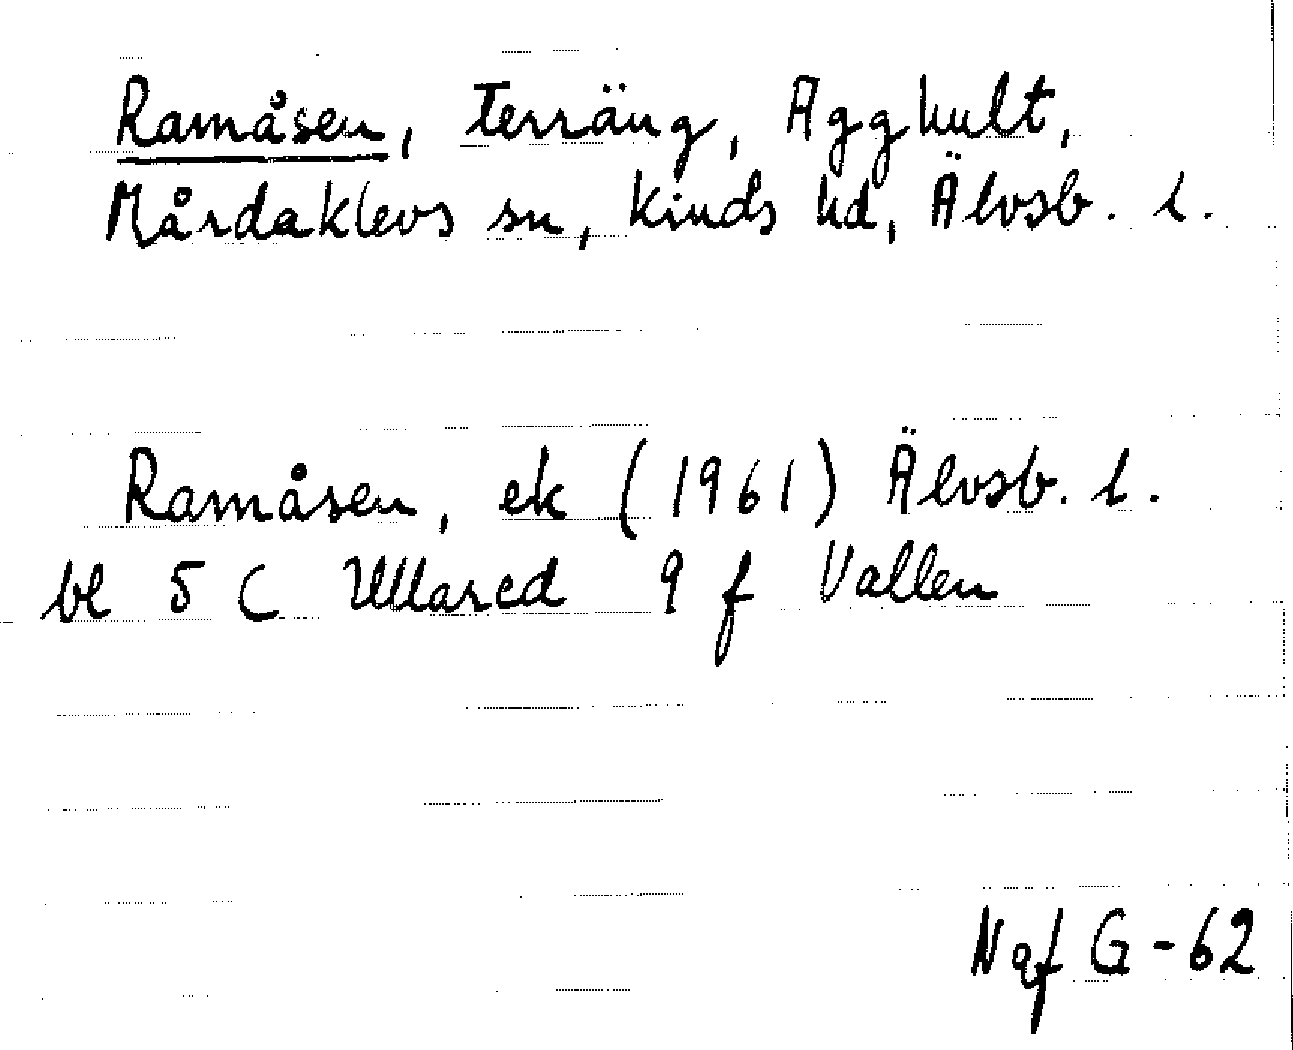 Ramåsen, terräng, Agghult,
Mårdaklevs sn, Kinds hd, Älvsb. l.
Ramåsen, ek (1961) Älvsb. l.
bl 5 C Ullared 9 f Vallen
Naf G-62